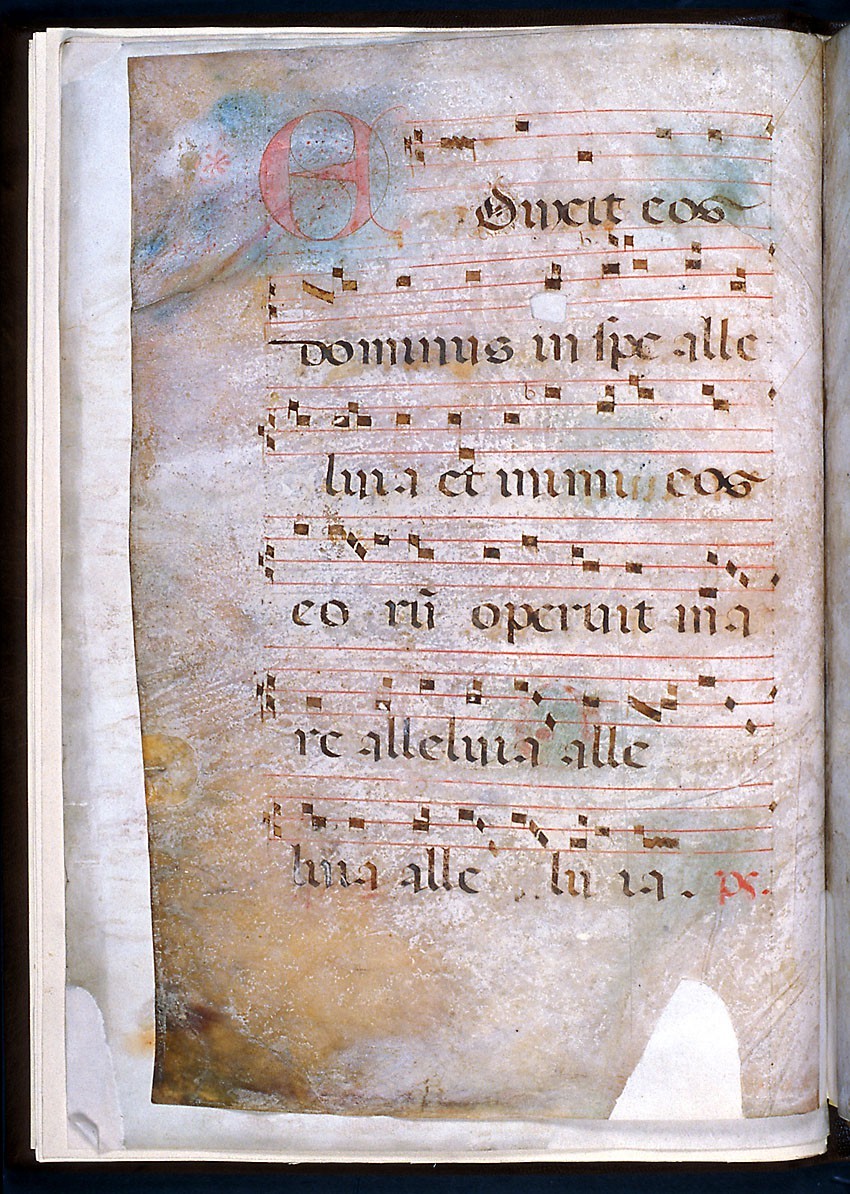 EDuxit eos
dominus in spe alle
luia et inimi cos
eo rū operuit ma
re alleluia alle
luia alle lu ia . ps.